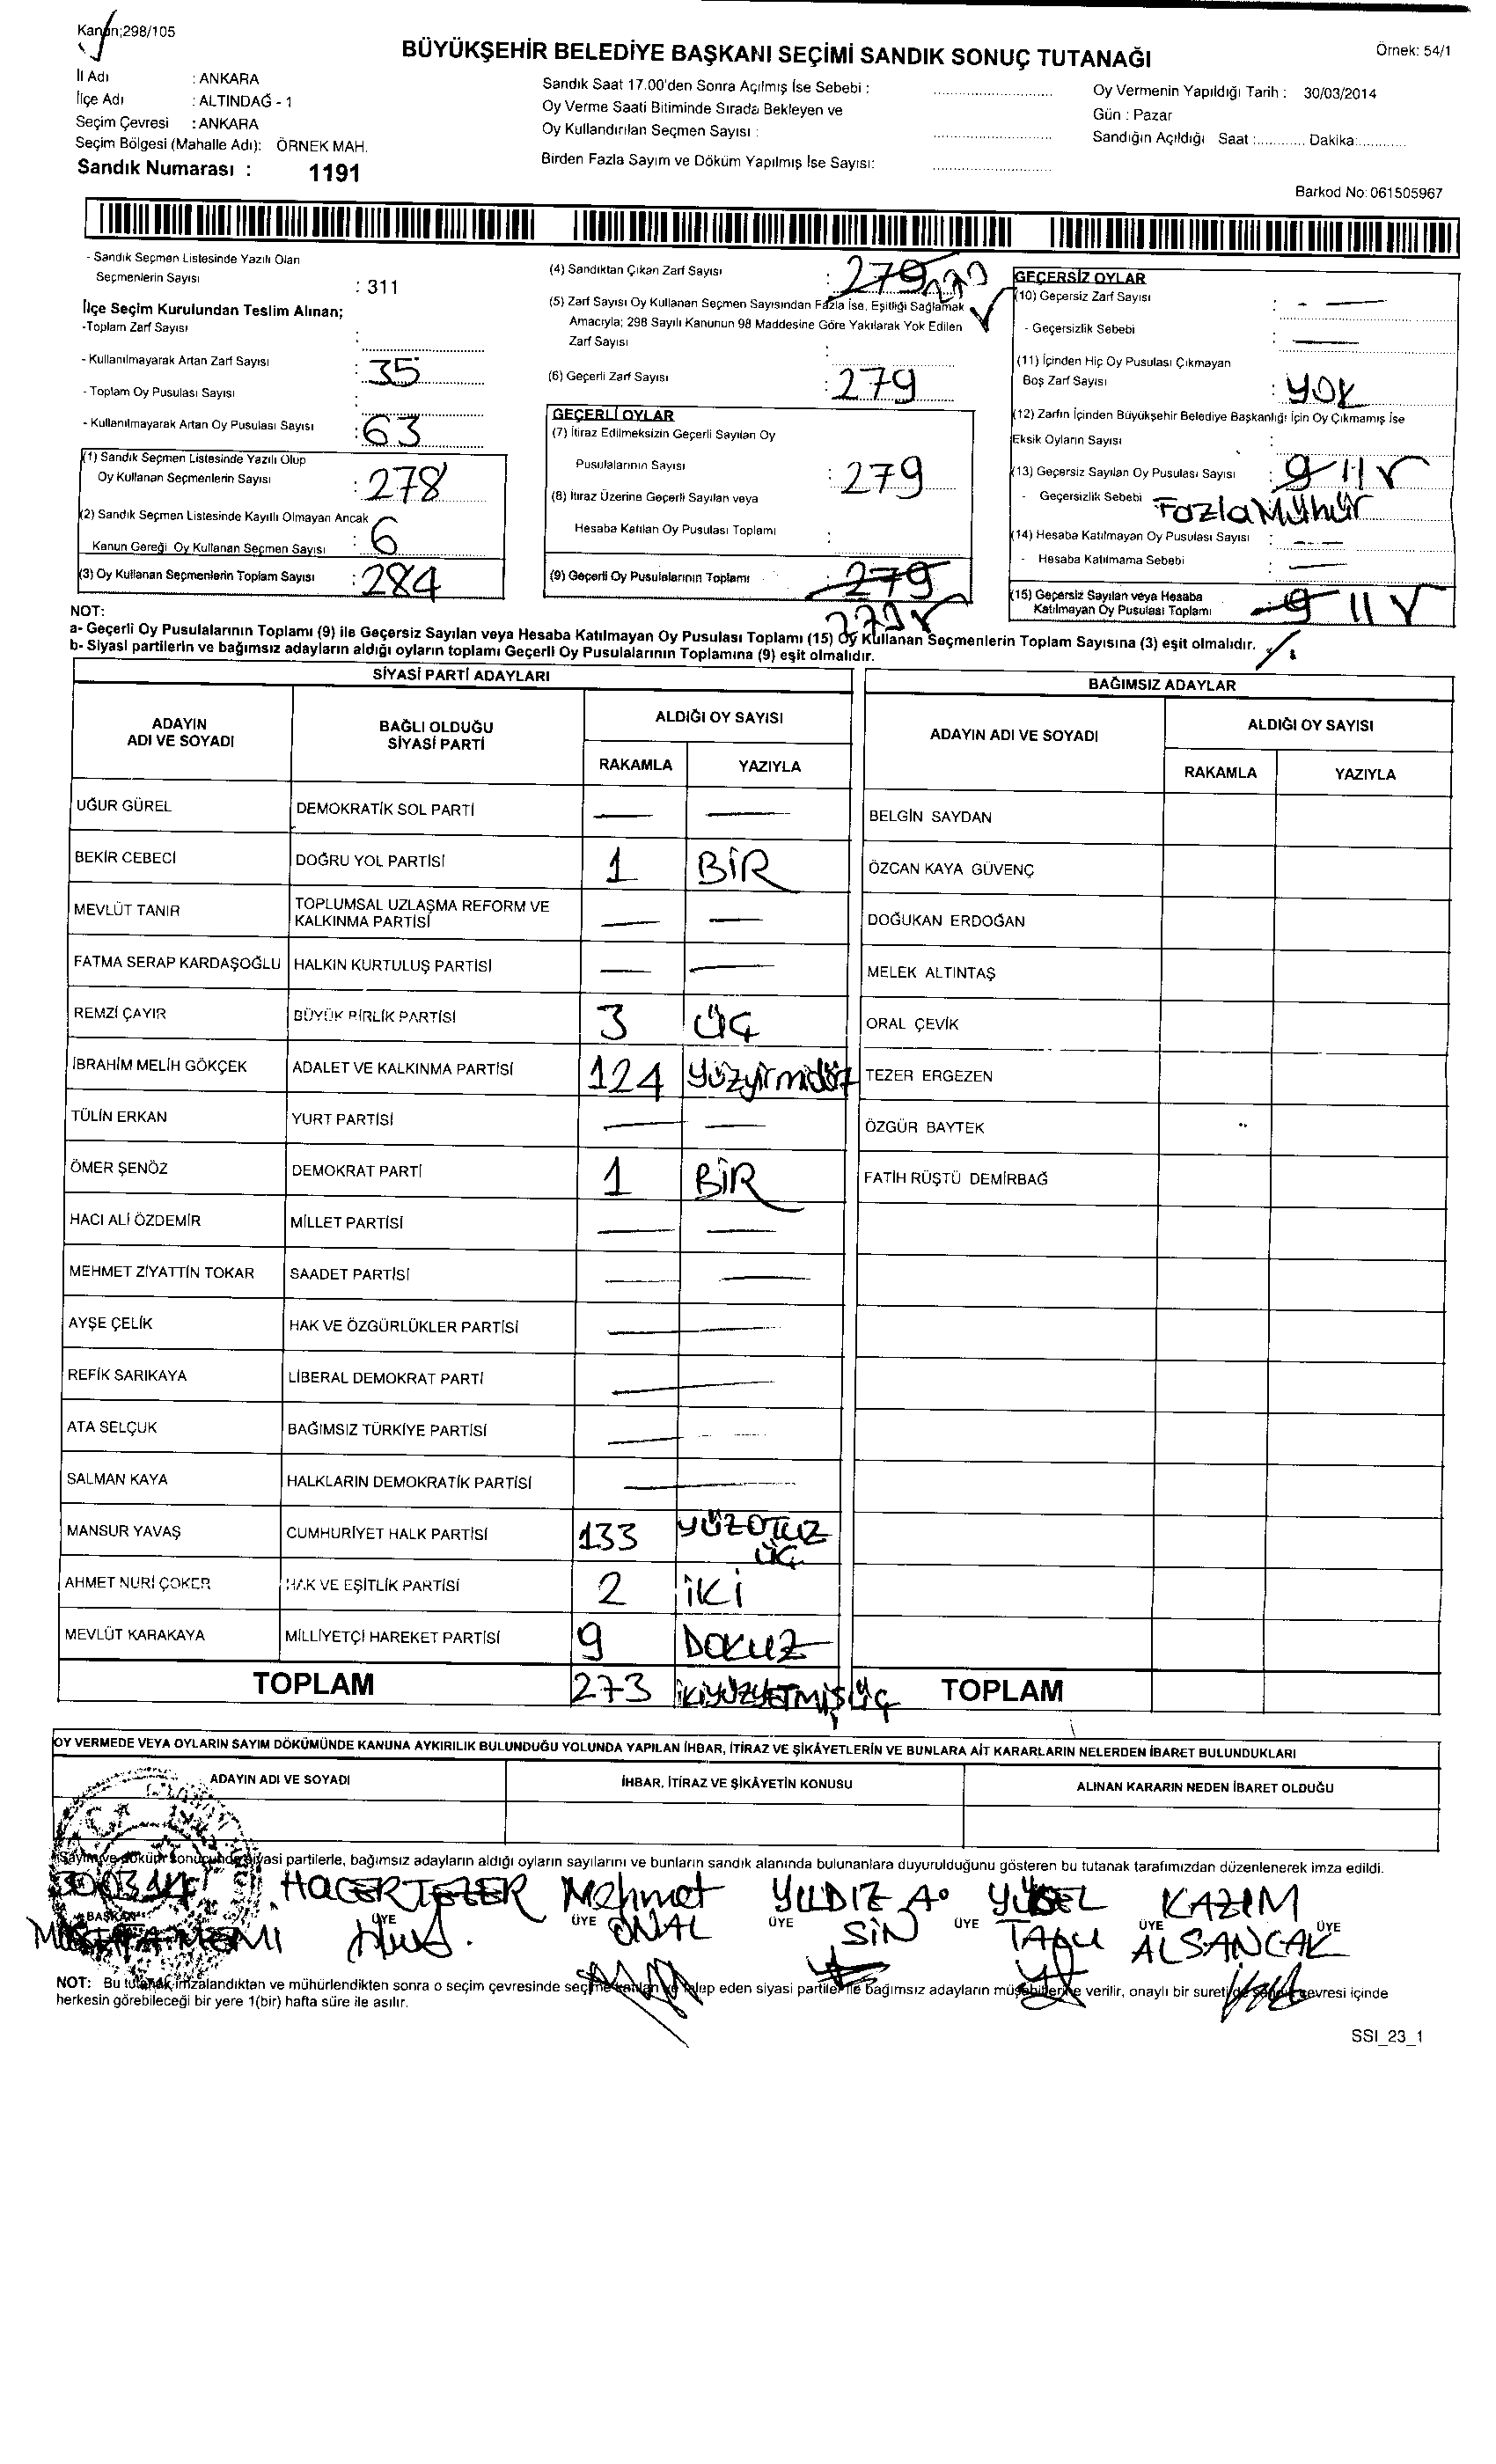 Kanun;298/105
BÜYÜKŞEHİR BELEDİYE BAŞKANI SEÇİMİ SANDIK SONUÇ TUTANAĞI
Örnek: 54/1
İl Adı : ANKARA
İlçe Adı : ALTINDAĞ - 1
Seçim Çevresi : ANKARA
Seçim Bölgesi (Mahalle Adı): ÖRNEK MAH.
Sandık Numarası : 1191
Sandık Saat 17.00'den Sonra Açılmış İse Sebebi :
Oy Verme Saati Bitiminde Sırada Bekleyen ve
Oy Kullandırılan Seçmen Sayısı :
Birden Fazla Sayım ve Döküm Yapılmış İse Sayısı:
Oy Vermenin Yapıldığı Tarih : 30/03/2014
Gün : Pazar
Sandığın Açıldığı Saat :............. Dakika:.............
Barkod No: 061505967
- Sandık Seçmen Listesinde Yazılı Olan
Seçmenlerin Sayısı : 311
İlçe Seçim Kurulundan Teslim Alınan;
-Toplam Zarf Sayısı :
- Kullanılmayarak Artan Zarf Sayısı : 35
- Toplam Oy Pusulası Sayısı :
- Kullanılmayarak Artan Oy Pusulası Sayısı : 63
(1) Sandık Seçmen Listesinde Yazılı Olup
Oy Kullanan Seçmenlerin Sayısı : 278
(2) Sandık Seçmen Listesinde Kayıllı Olmayan Ancak
Kanun Gereği Oy Kullanan Seçmen Sayısı : 6
(3) Oy Kullanan Seçmenlerin Toplam Sayısı : 284
(4) Sandıktan Çıkan Zarf Sayısı : 279
(5) Zarf Sayısı Oy Kullanan Seçmen Sayısından Fazla İse, Eşitliği Sağlamak
Amacıyla; 298 Sayılı Kanunun 98 Maddesine Göre Yakılarak Yok Edilen
Zarf Sayısı :
(6) Geçerli Zarf Sayısı : 279
GEÇERLİ OYLAR
(7) İtiraz Edilmeksizin Geçerli Sayılan Oy
Pusulalarının Sayısı : 279
(8) İtiraz Üzerine Geçerli Sayılan veya
Hesaba Katılan Oy Pusulası Toplamı :
(9) Geçerli Oy Pusulalarının Toplamı : 279
GEÇERSİZ OYLAR
(10) Geçersiz Zarf Sayısı : - —
- Geçersizlik Sebebi : —
(11) İçinden Hiç Oy Pusulası Çıkmayan
Boş Zarf Sayısı : YOK
(12) Zarfın İçinden Büyükşehir Belediye Başkanlığı İçin Oy Çıkmamış İse
Eksik Oyların Sayısı :
(13) Geçersiz Sayılan Oy Pusulası Sayısı : 9 11
- Geçersizlik Sebebi Fazla Mühür
(14) Hesaba Katılmayan Oy Pusulası Sayısı : —
- Hesaba Katılmama Sebebi : —
(15) Geçersiz Sayılan veya Hesaba
Katılmayan Oy Pusulası Toplamı 9 11
NOT:
a- Geçerli Oy Pusulalarının Toplamı (9) ile Geçersiz Sayılan veya Hesaba Katılmayan Oy Pusulası Toplamı (15) Oy Kullanan Seçmenlerin Toplam Sayısına (3) eşit olmalıdır.
b- Siyasi partilerin ve bağımsız adayların aldığı oyların toplamı Geçerli Oy Pusulalarının Toplamına (9) eşit olmalıdır.
SİYASİ PARTİ ADAYLARI
ADAYIN ADI VE SOYADI
BAĞLI OLDUĞU SİYASİ PARTİ
ALDIĞI OY SAYISI
RAKAMLA YAZIYLA
UĞUR GÜREL DEMOKRATİK SOL PARTİ — —
BEKİR CEBECİ DOĞRU YOL PARTİSİ 1 BİR
MEVLÜT TANIR TOPLUMSAL UZLAŞMA REFORM VE KALKINMA PARTİSİ — —
FATMA SERAP KARDAŞOĞLU HALKIN KURTULUŞ PARTİSİ — —
REMZİ ÇAYIR BÜYÜK BİRLİK PARTİSİ 3 ÜÇ
İBRAHİM MELİH GÖKÇEK ADALET VE KALKINMA PARTİSİ 124 yüzyirmidört
TÜLİN ERKAN YURT PARTİSİ — —
ÖMER ŞENÖZ DEMOKRAT PARTİ 1 BİR
HACI ALİ ÖZDEMİR MİLLET PARTİSİ — —
MEHMET ZİYATTİN TOKAR SAADET PARTİSİ — —
AYŞE ÇELİK HAK VE ÖZGÜRLÜKLER PARTİSİ —
REFİK SARIKAYA LİBERAL DEMOKRAT PARTİ —
ATA SELÇUK BAĞIMSIZ TÜRKİYE PARTİSİ — —
SALMAN KAYA HALKLARIN DEMOKRATİK PARTİSİ —
MANSUR YAVAŞ CUMHURİYET HALK PARTİSİ 133 YÜZOTUZ ÜÇ
AHMET NURİ ÇOKER HAK VE EŞİTLİK PARTİSİ 2 İKİ
MEVLÜT KARAKAYA MİLLİYETÇİ HAREKET PARTİSİ 9 DOKUZ
TOPLAM 273 İKİYÜZYETMİŞÜÇ
BAĞIMSIZ ADAYLAR
ADAYIN ADI VE SOYADI
ALDIĞI OY SAYISI
RAKAMLA YAZIYLA
BELGİN SAYDAN
ÖZCAN KAYA GÜVENÇ
DOĞUKAN ERDOĞAN
MELEK ALTINTAŞ
ORAL ÇEVİK
TEZER ERGEZEN
ÖZGÜR BAYTEK
FATİH RÜŞTÜ DEMİRBAĞ
TOPLAM
OY VERMEDE VEYA OYLARIN SAYIM DÖKÜMÜNDE KANUNA AYKIRILIK BULUNDUĞU YOLUNDA YAPILAN İHBAR, İTİRAZ VE ŞİKÂYETLERİN VE BUNLARA AİT KARARLARIN NELERDEN İBARET BULUNDUKLARI
ADAYIN ADI VE SOYADI İHBAR, İTİRAZ VE ŞİKÂYETİN KONUSU ALINAN KARARIN NEDEN İBARET OLDUĞU
Sayım ve döküm sonucunda siyasi partilerle, bağımsız adayların aldığı oyların sayılarını ve bunların sandık alanında bulunanlara duyurulduğunu gösteren bu tutanak tarafımızdan düzenlenerek imza edildi.
HACER TEZER Mehmet YILDIZ A. YÜKSEL KAZIM
BAŞKAN ÜYE ÜYE ÜYE ÜYE ÜYE ÜYE
ÖNAL SİN ALSANCAK
NOT: Bu tutanak imzalandıktan ve mühürlendikten sonra o seçim çevresinde seçime katılan ve talep eden siyasi partiler ile bağımsız adayların müşahitlerine verilir, onaylı bir sureti de sandık çevresi içinde
herkesin görebileceği bir yere 1(bir) hafta süre ile asılır.
SSI_23_1